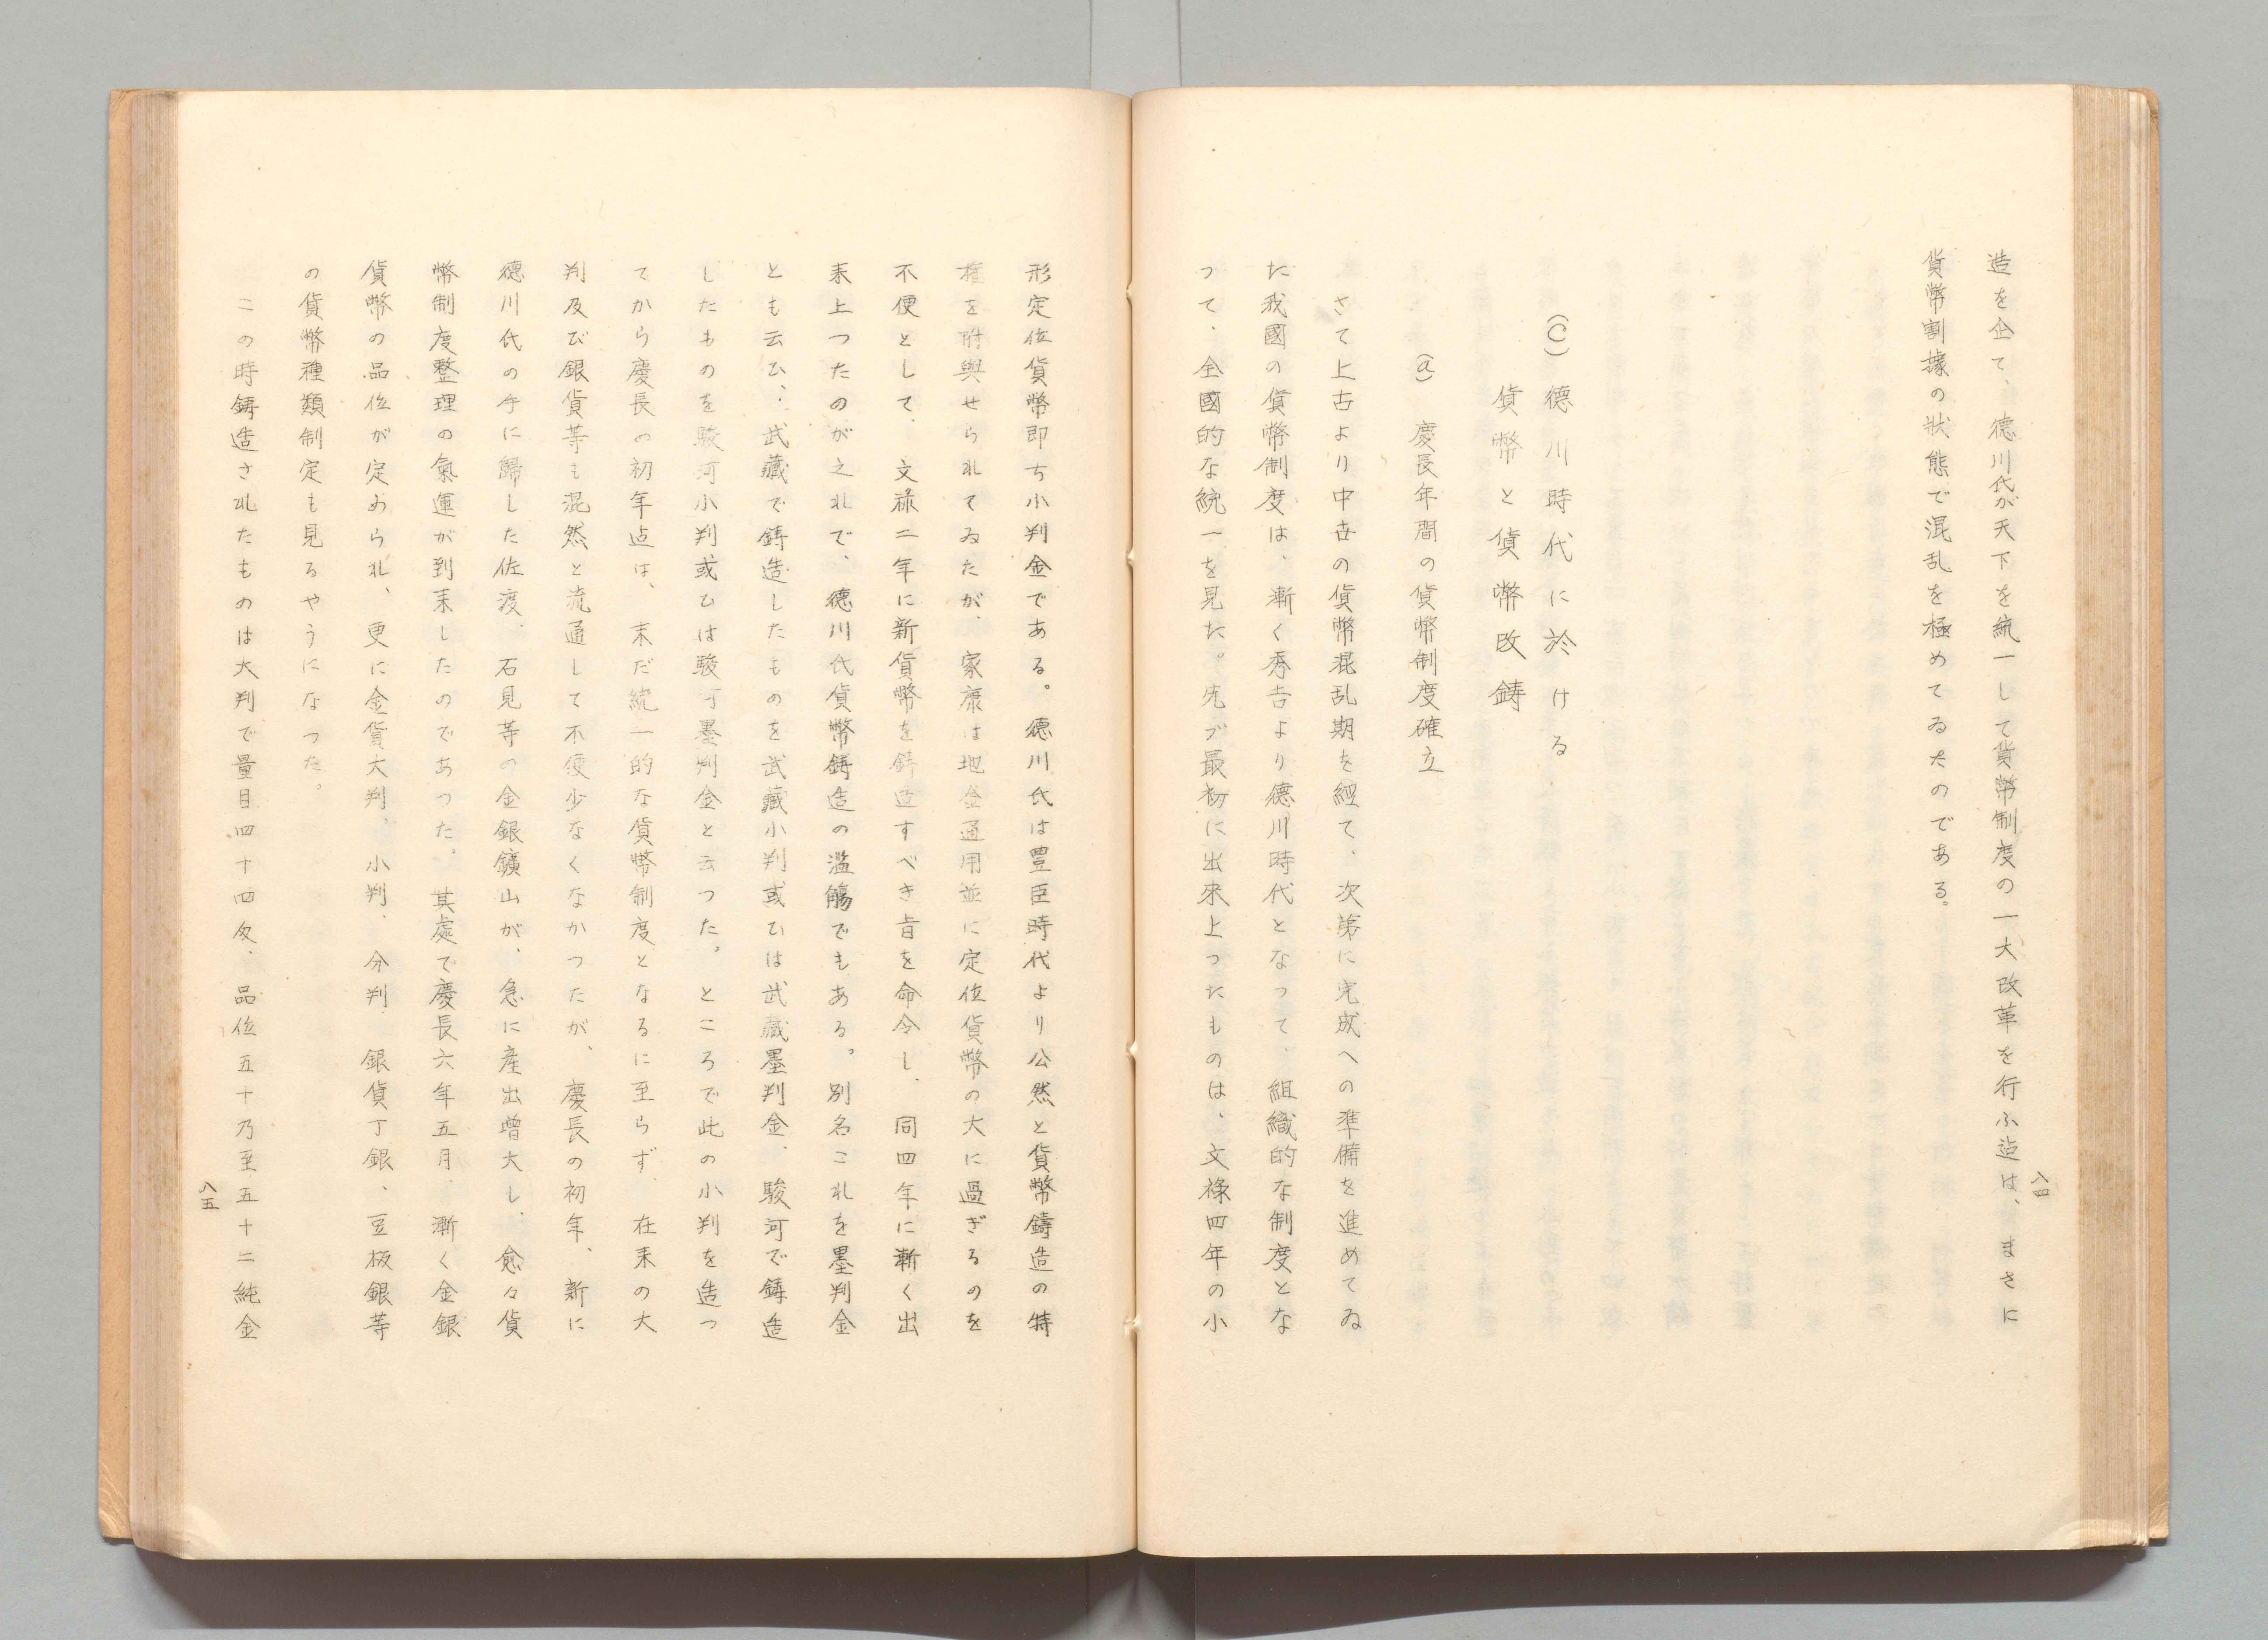 造を企て、德川代が天下を統一して貨幣制度の一大改革を行ふ迄は、まさに
貨幣割據の狀態で混乱を極めてゐたのである。
(C) 德川時代に於ける
貨幣と貨幣改鋳
(a) 慶長年間の貨幣制度確立
さて上古より中世の貨幣混乱期を經て、次第に完成への準備を進めてゐ
た我國の貨幣制度は、漸く秀吉より德川時代となつて、組織的な制度とな
つて、全國的な統一を見た。先ヅ最初に出來上つたものは、文祿四年の小
八四
形定位貨幣即ち小判金である。德川氏は豊臣時代より公然と貨幣鑄造の特
權を附與せられてゐたが、家康は地金通用並に定位貨幣の大に過ぎるのを
不便として、文祿二年に新貨幣を鋳造すべき旨を命令し、同四年に漸く出
来上つたのが之れで、德川代貨幣鋳造の濫觴でもある。別名これを墨判金
とも云ひ、武藏で鋳造したものを武藏小判或ひは武藏墨判金、駿河で鋳造
したものを駿河小判或ひは駿河墨判金と云つた。ところで此の小判を造つ
てから慶長の初年迄は、末だ統一的な貨幣制度となるに至らず、在来の大
判及び銀貨等も混然と流通して不便少なくなかつたが、慶長の初年、新に
德川代の手に歸した佐渡、石見等の金銀鑛山が、急に産出增大し、愈々貨
幣制度整理の氣運が到来したのであつた。其處で慶長六年五月、漸く金銀
貨幣の品位が定められ、更に金貨大判、小判、分判、銀貨丁銀、豆板銀等
の貨幣種類制定も見るやうになつた。
この時鋳造されたものは大判で量目四十四匁、品位五十乃至五十二純金
八五